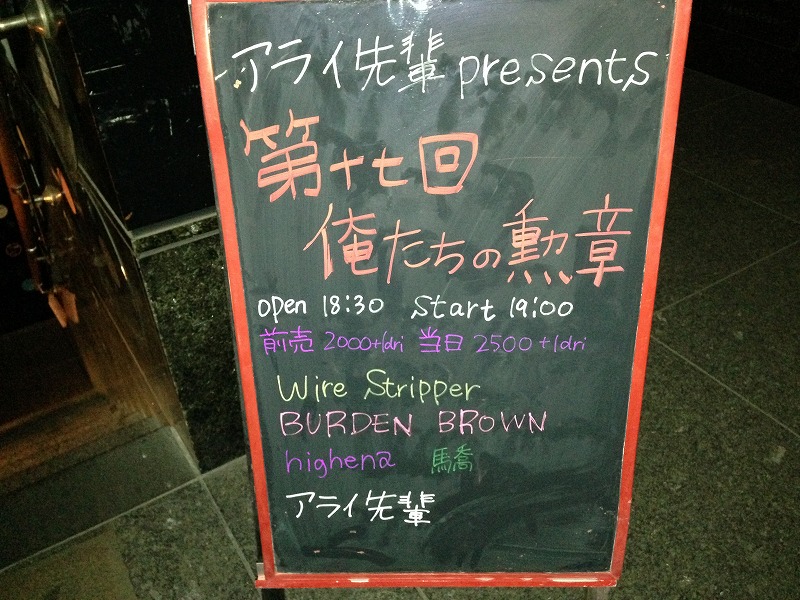 アライ先輩 presents
第十七回
俺たちの勲章
open 18:30 start 19:00
前売 2000+1dri 当日 2500+1dri
Wire Stripper
BURDEN BROWN
highen@ 驕
アライ先輩